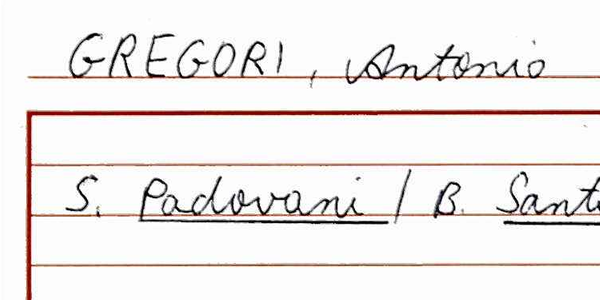 GREGORI, Antonio
S. Padovani / B. Santi